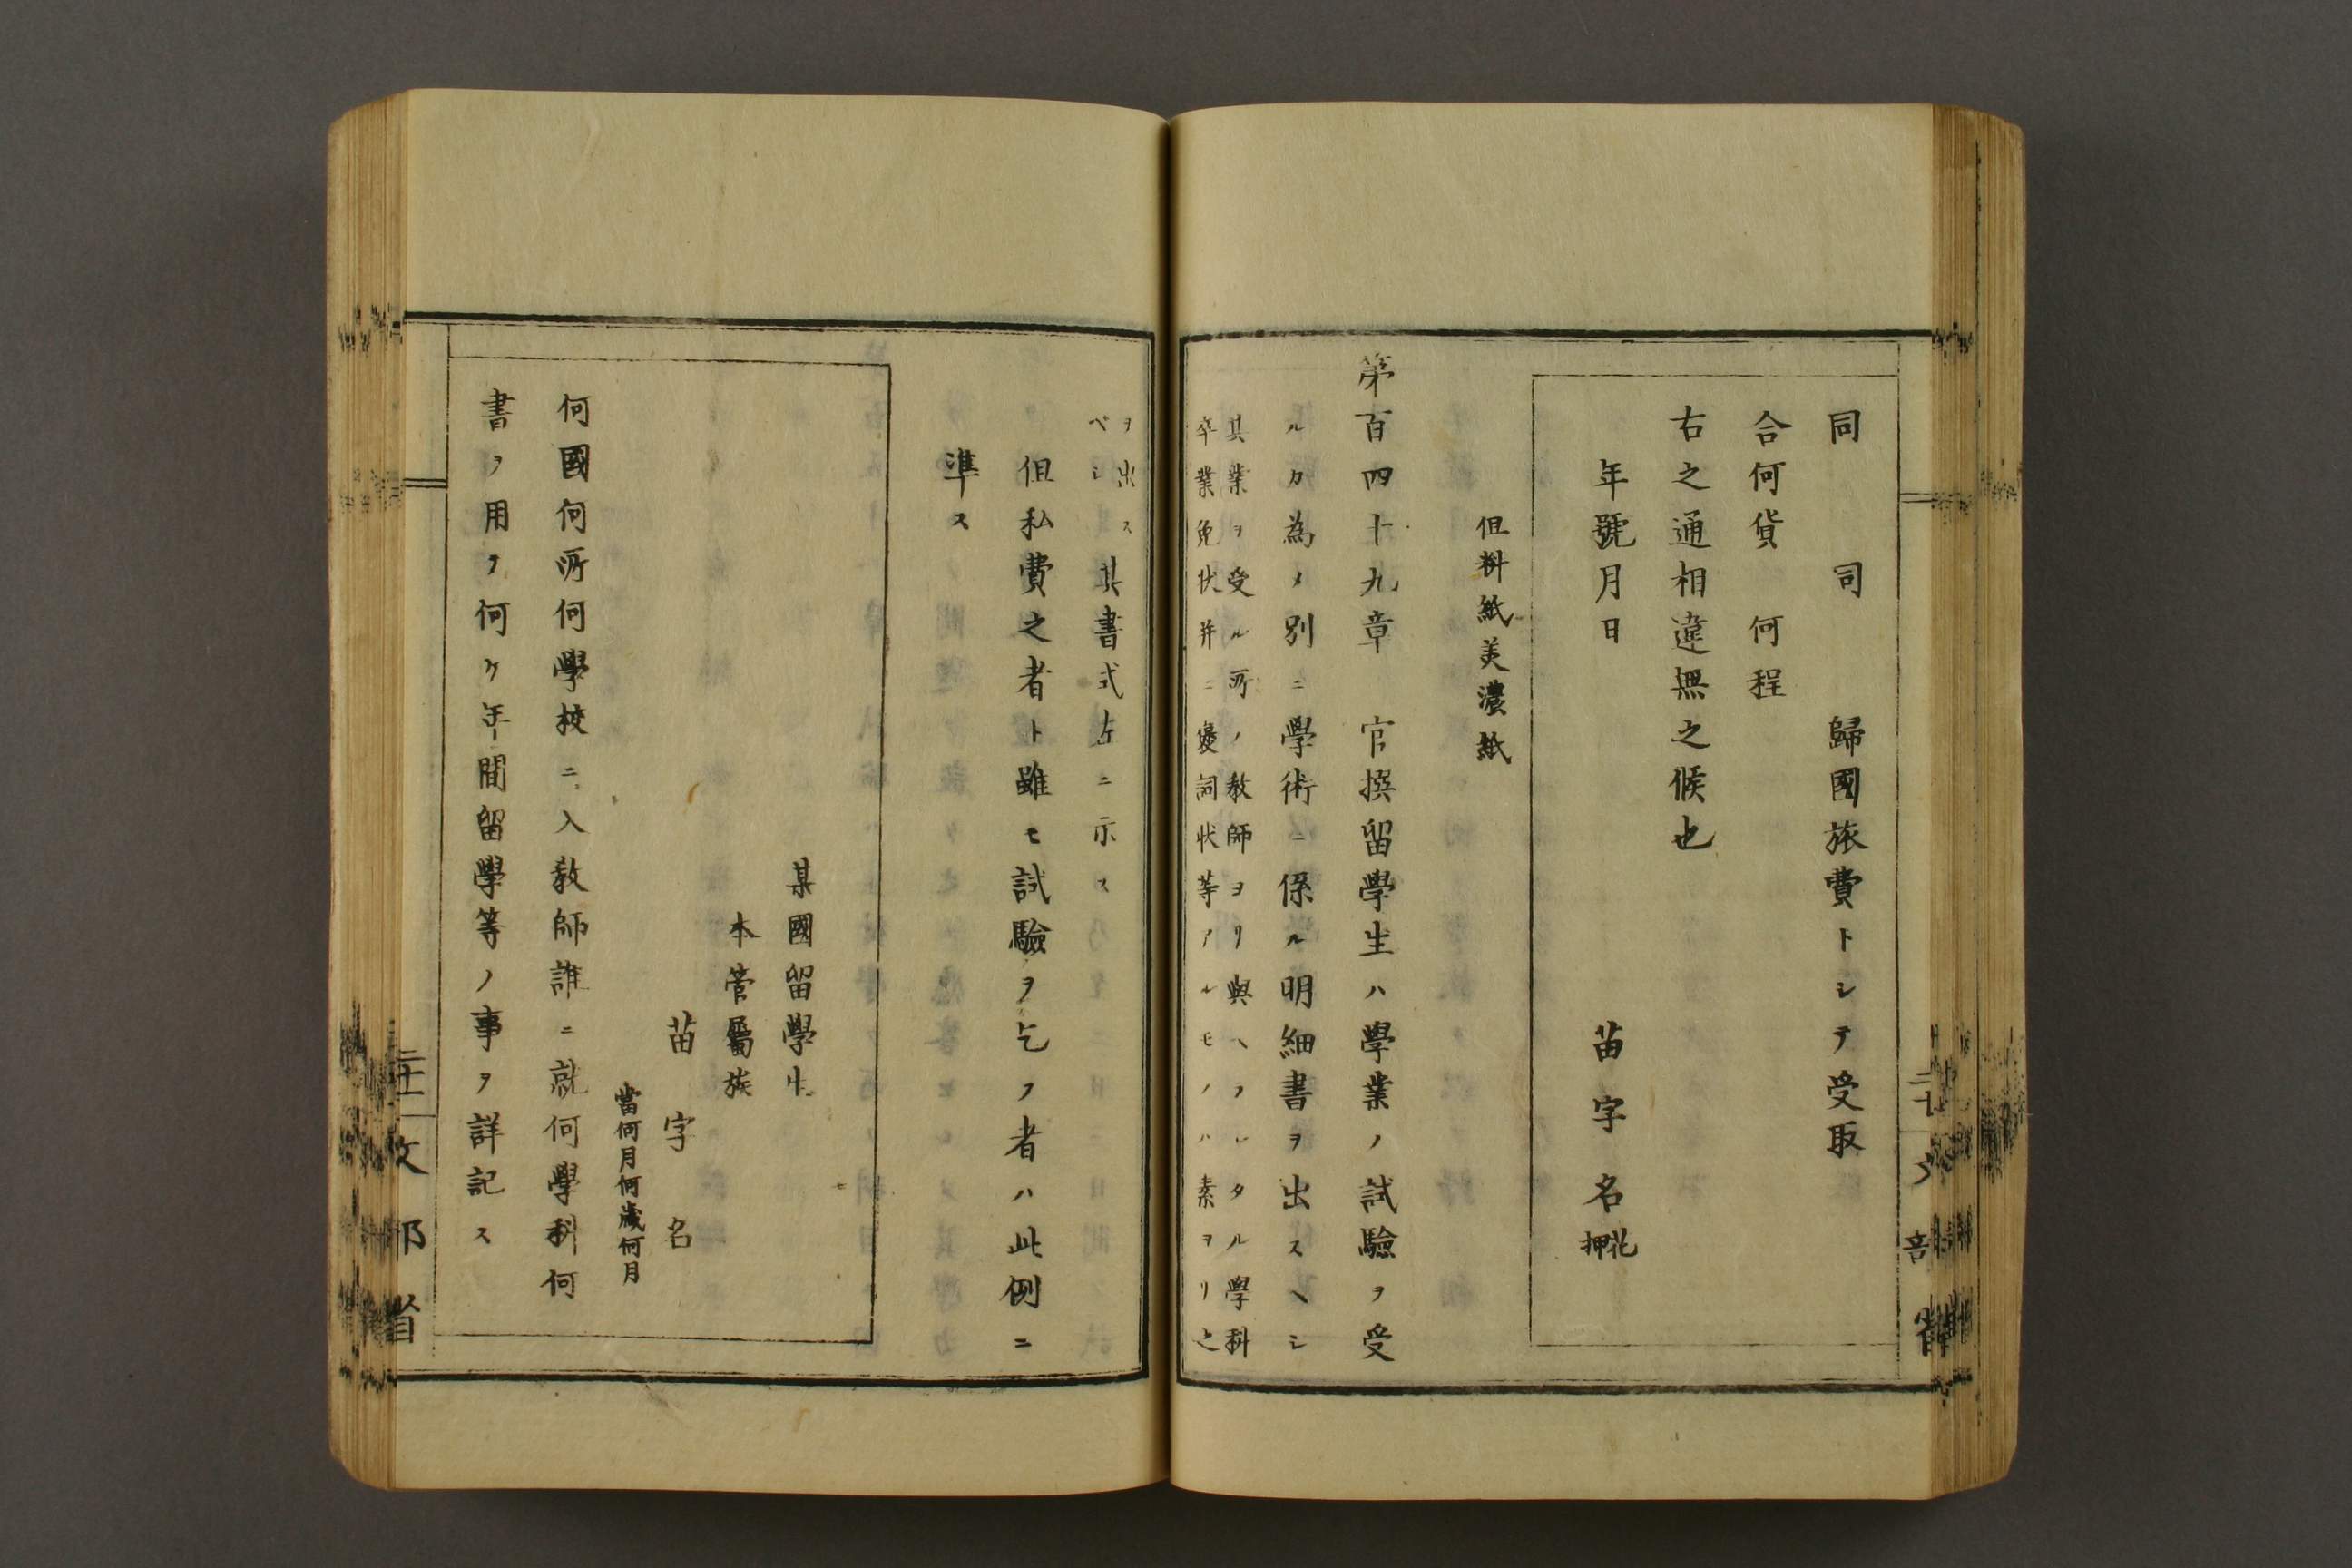 同　司　歸國旅費トシテ受取
合何貨　何程
右之通相違無之候也
年號月日　苗字名花押
但料紙美濃紙
第百四十九章　官撰留學生ハ學業ノ試驗ヲ受
ルカ為メ別ニ學術ニ係ル明細書ヲ出スヘシ
其業ヲ受ル所ノ教師ヨリ與ヘラレタル學科
卒業免状并ニ褒詞状等アルモノハ素ヨリ之
ヲ出ス
ベシ
其書式左ニ示ス
但私費之者ト雖モ試驗ヲ乞フ者ハ此例ニ
準ス
某國留學生
本管屬族
苗字名
當何月何歲何月
何國何所何學校ニ入教師誰ニ就何學科何
書ヲ用ヲ何ケ年間留學等ノ事ヲ詳記ス
文部省